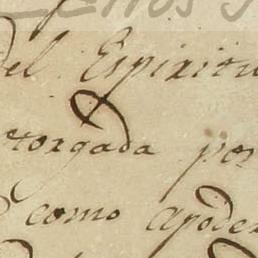 del Espiritu
otorgada por
como apoder